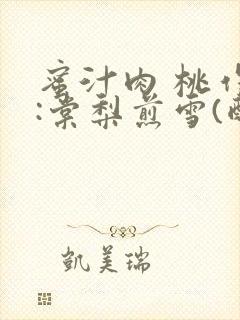 蜜汁肉桃作
:棠梨煎雪(醉
凯美瑞